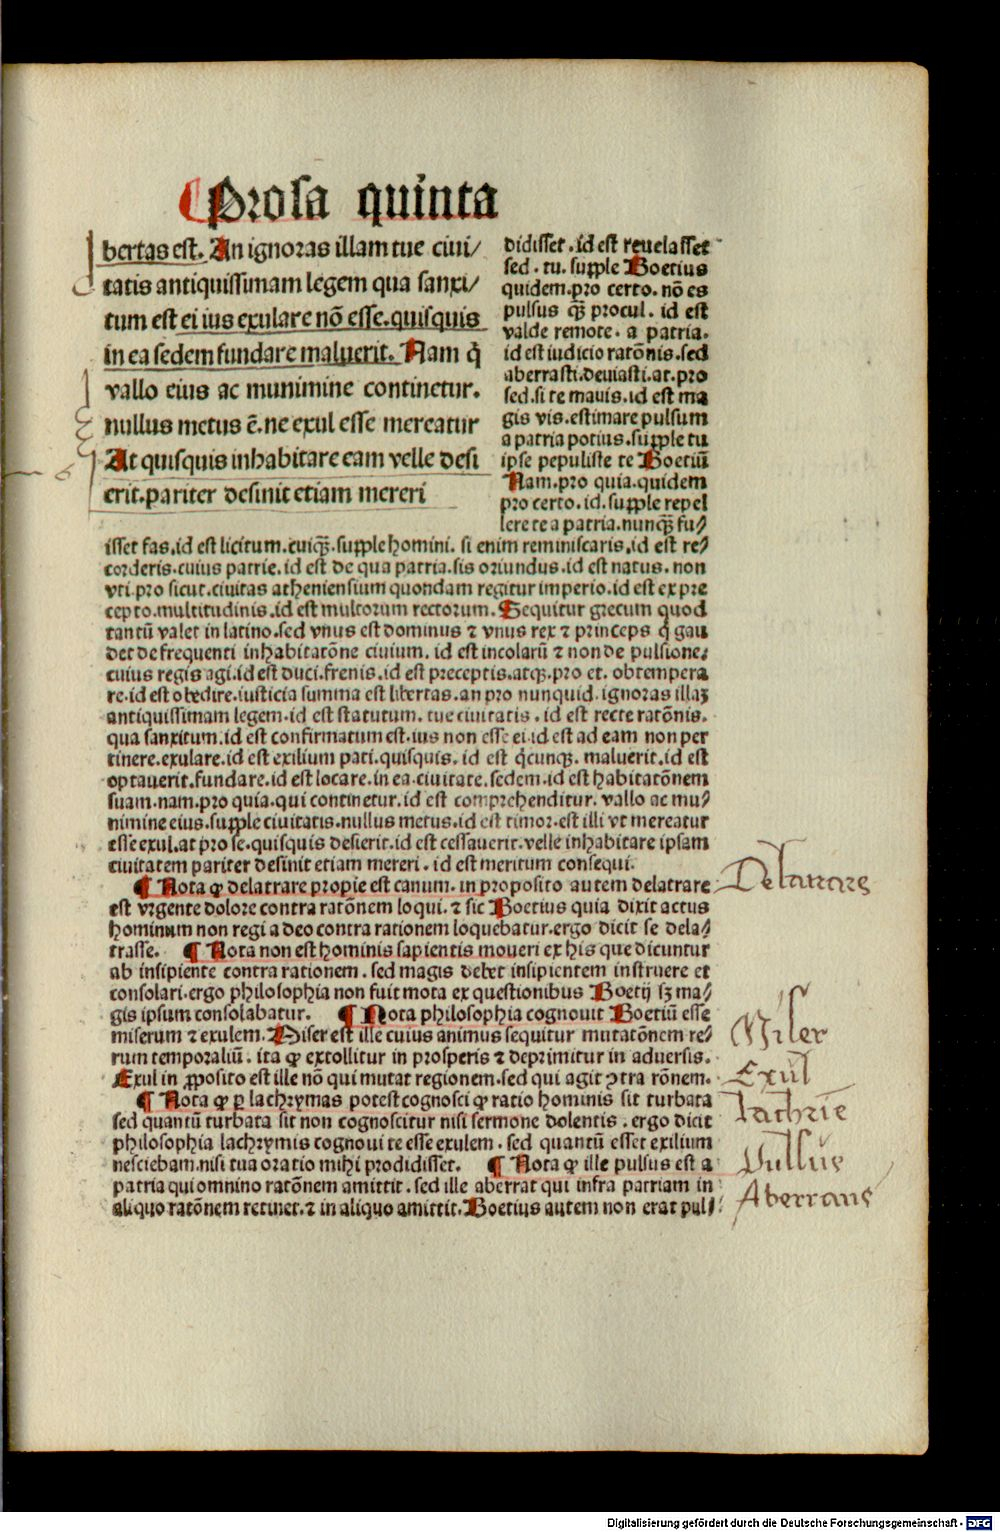 Prosa quinta
bertas est. An ignoras illam tue ciui/
tatis antiquissimam legem qua sanxi/
tum est ei ius exulare nõ esse. quisquis
in ea sedem fundare maluerit. Nam q̇
vallo eius ac munimine continetur.
nullus metus ẽ. ne exul esse mereatur
At quisquis inhabitare eam velle desi
erit. pariter desinit etiam mereri
didisset. id est reuelasset
sed. tu. supple Boetius
quidem. pro certo. nõ es
pulsus qȝ procul. id est
valde remote. a patria.
id est iudicio ratõnis. sed
aberrasti. deuiasti. at. pro
sed. si te mauis. id est ma
gis vis. estimare pulsum
a patria potius. supple tu
ipse pepuliste te Boetiũ
Nam. pro quia. quidem
pro certo. id. supple repel
lere te a patria. nunqȝ fu/
isset fas. id est licitum. cuiqȝ. supple homini. si enim reminiscaris. id est re/
corderis. cuius patrie. id est de qua patria. sis oriundus. id est natus. non
vti. pro sicut. ciuitas atheniensium quondam regitur imperio. id est ex pre
cepto. multitudinis. id est multorum rectorum. Sequitur grecum quod
tantũ valet in latino. sed vnus est dominus ⁊ vnus rex ⁊ princeps q̇ gau
det de frequenti inhabitatõne ciuium. id est incolarũ ⁊ non de pulsione.
cuius regis agi. id est duci. frenis. id est preceptis. atqȝ. pro et. obtempera
re. id est obedire. iusticia summa est libertas. an pro nunquid. ignoras illaȝ
antiquissimam legem. id est statutum. tue ciuitatis. id est recte ratõnis.
qua sanxitum. id est confirmatum est. ius non esse ei. id est ad eam non per
tinere. exulare. id est exilium pati. quisquis. id est q̇cunqȝ. maluerit. id est
optauerit. fundare. id est locare. in ea. ciuitate. sedem. id est habitatõnem
suam. nam. pro quia. qui continetur. id est comprehenditur. vallo ac mu/
nimine eius. supple ciuitatis. nullus metus. id est timor. est illi vt mereatur
esse exul. at pro se. quisquis desierit. id est cessauerit. velle inhabitare ipsam
ciuitatem pariter desinit etiam mereri. id est meritum consequi.
¶ Nota ꝙ delatrare propie est canum. in proposito autem delatrare
est vrgente dolore contra ratõnem loqui. ⁊ sic Boetius quia dixit actus
hominum non regi a deo contra rationem loquebatur. ergo dicit se dela/
trasse. ¶ Nota non est hominis sapientis moueri ex his que dicuntur
ab insipiente contra rationem. sed magis debet insipientem instruere et
consolari. ergo philosophia non fuit mota ex questionibus Boetij sȝ ma/
gis ipsum consolabatur. ¶ Nota philosophia cognouit Boetiũ esse
miserum ⁊ exulem. Miser est ille cuius animus sequitur mutatõnem re/
rum temporaliũ. ita ꝙ extollitur in prosperis ⁊ deprimitur in aduersis.
Exul in ꝓposito est ille nõ qui mutat regionem. sed qui agit ꝯtra rõnem.
¶ Nota ꝙ ꝑ lachrymas potest cognosci ꝙ ratio hominis sit turbata
sed quantũ turbata sit non cognoscitur nisi sermone dolentis. ergo dicit
philosophia lachrymis cognoui te esse exulem. sed quantũ esset exilium
nesciebam. nisi tua oratio mihi prodidisset. ¶ Nota ꝙ ille pulsus est a
patria qui omnino ratõnem amittit. sed ille aberrat qui infra patriam in
aliquo ratõnem retinet. ⁊ in aliquo amittit. Boetius autem non erat pul/
Delatrare
Miser
Exul
Lachrie
Pulsus
Aberrans
Digitalisierung gefördert durch die Deutsche Forschungsgemeinschaft - DFG